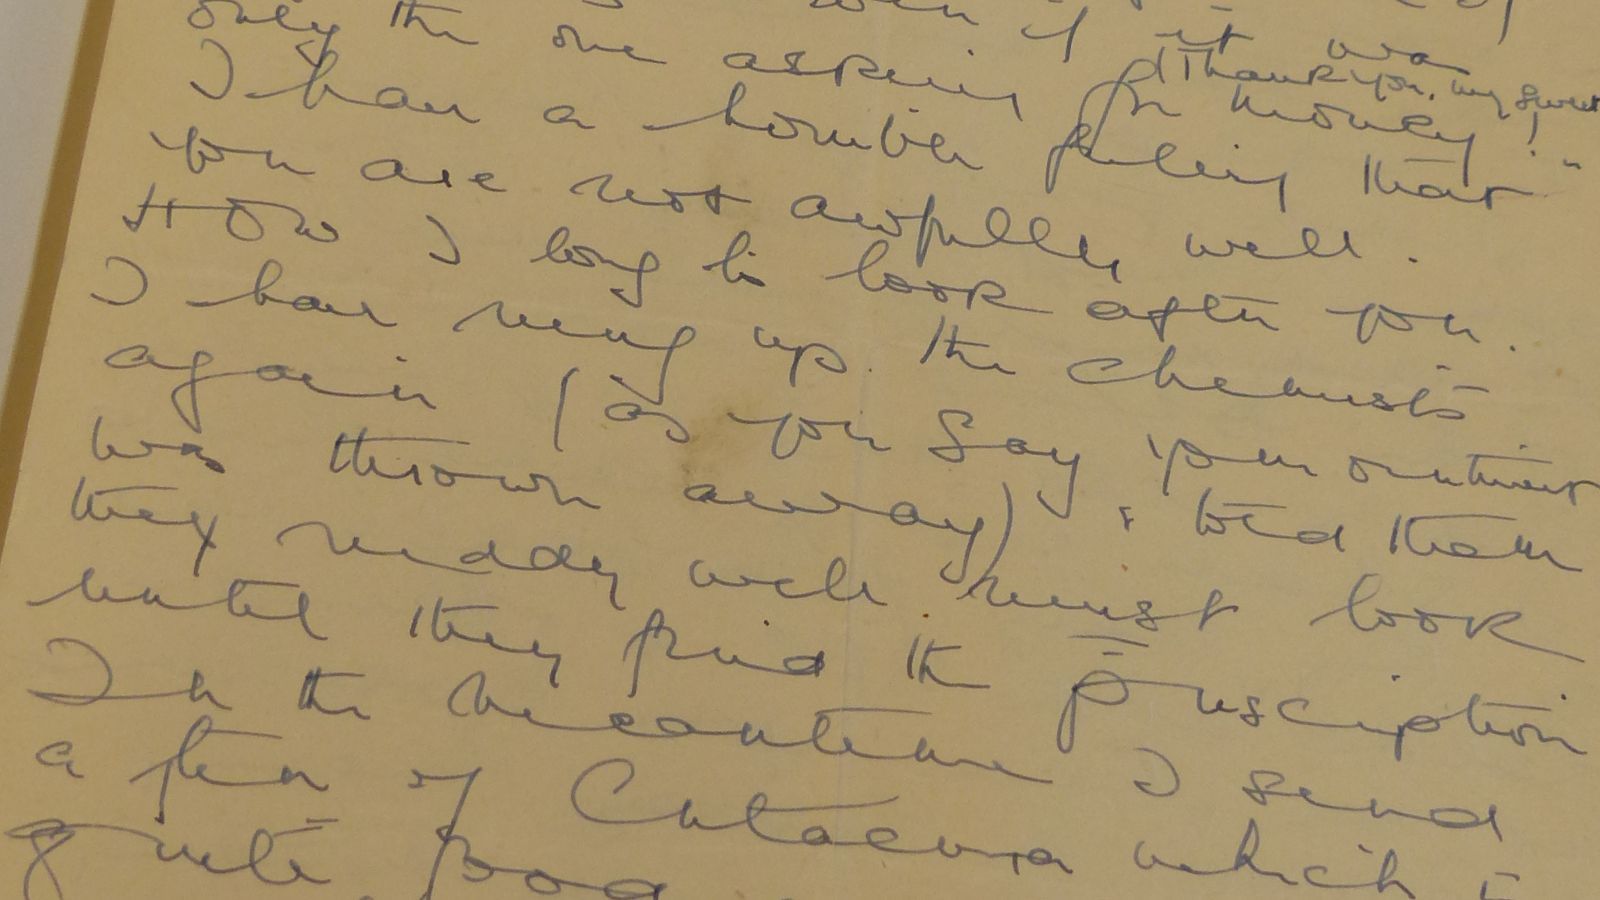 even if it was
only the one asking for money!
"Thank you, my sweet!"
I have a horrible feeling that
you are not awfully well.
How I long to look after you.
I have rung up the chemists
again (as you say your ointment
was thrown away) & told them
they really well must look
until they find the prescription
In the meantime I send
a few of Cutacura which is
quite good